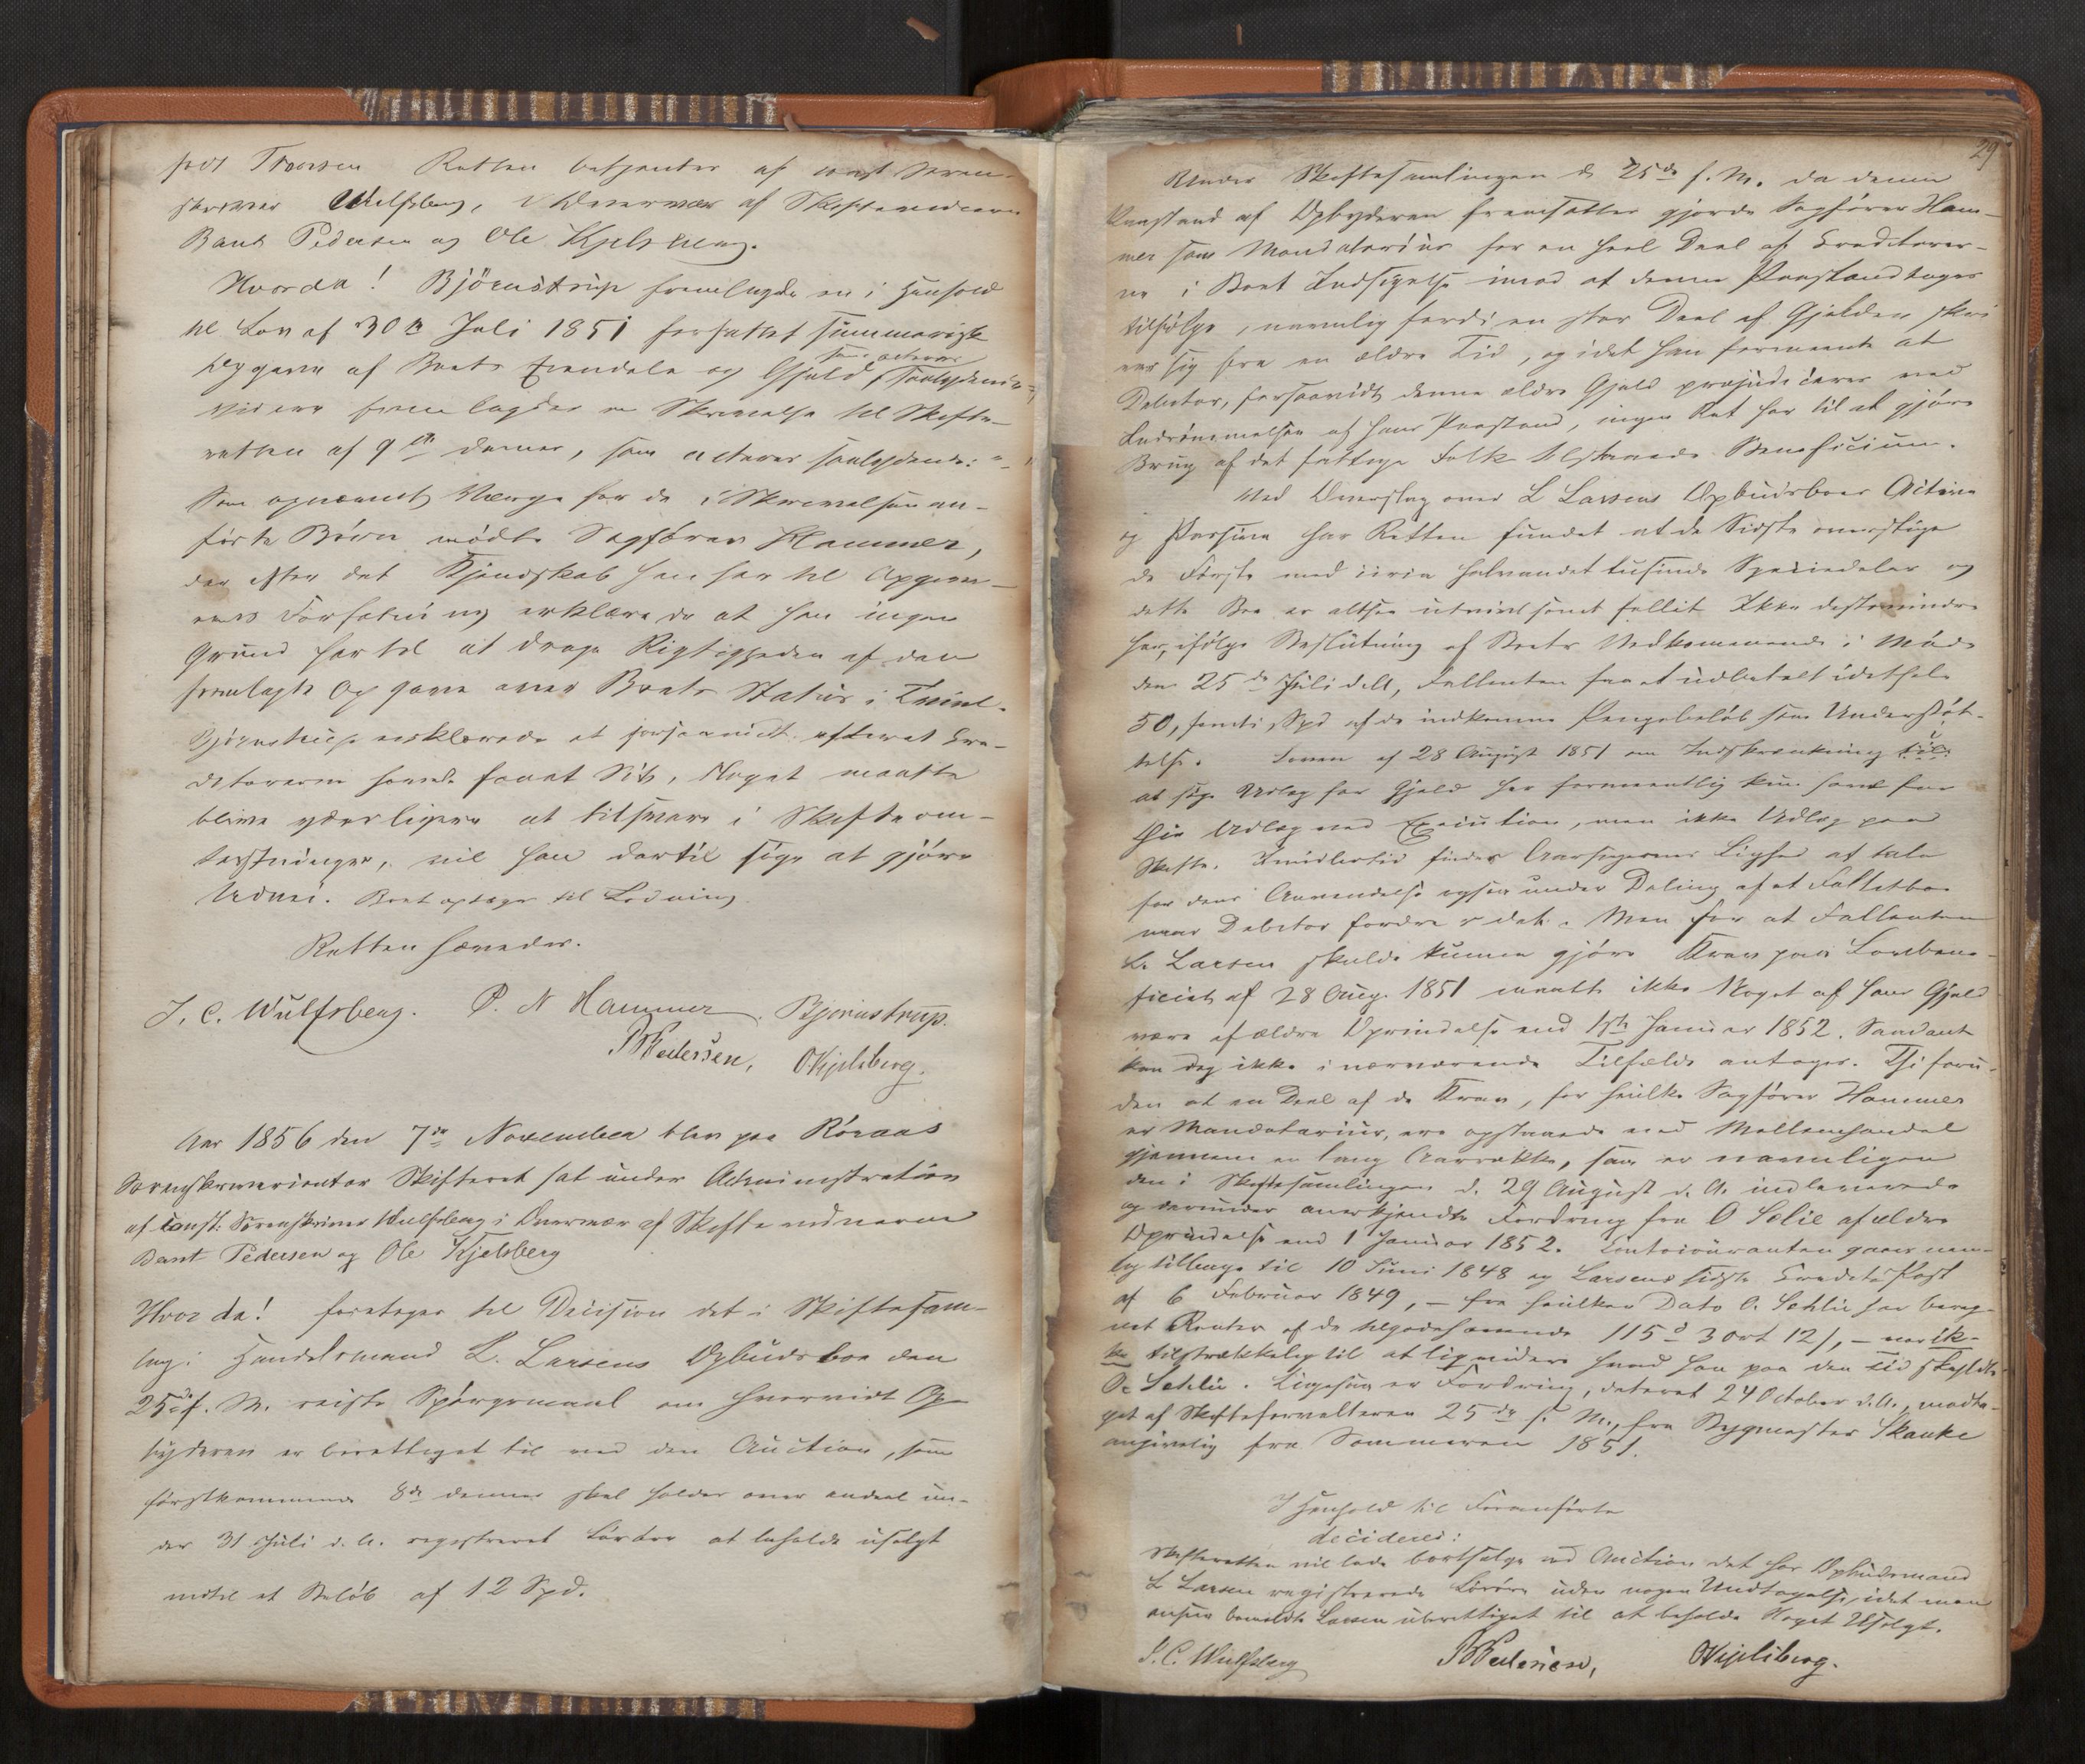 Retten betjentes af const Soren-
skriver Wulfsberg, i Overvær af Skiftevidnerne
Bent Pedersen og Ole Kjelsberg.
Hvorda! Björnstrup fremlagde en i Henhold
til Lov af 30te Juli 1851 forfattet summarisk
Opgave af Boets Eiendele og Gjeld, som acteres saalydende:
Videre fremlagdes en Skrivelse til Skifte-
retten af 9de dennes, som acteres saalydende:
Som opnævnt Værge for de i Skrivelsen an-
förte Börn mödte Sagförer Hammer,
der efter det Kjendskab han har til Opgiver-
ens Forfatning erklærede at han ingen
Grund har til at drage Rigtigheden af den
fremlagte Opgave over Boets Status i Tvivl.
Björnstrup erklærede at forsaavidt efterat Cre-
ditorerne havde faaet Sit, Noget maatte
blive yderligere at tilsvare i Skifteom-
kostninger, vil han dertil sige at gjöre
Udvei. Boet optages til Lodning.
Retten hævedes.
J. C. Wulfsberg. P. N Hammer. Bjørnstrup.
BPedersen, OKjelsberg.
Aar 1856 den 7de November blev paa Röraas
Sorenskrivercontor Skifteret sat under Administration
af const: Sorenskriver Wulfsberg i Overvær af Skiftevidnerne
Bent Pedersen og Ole Kjelsberg
Hvor da! foretoges til Decision det i Skiftesam-
ling i Handelsmand L. Larsens Opbudsboe den
25de f. M. reiste Spörgsmaal om hvorvidt Op-
byderen er berettiget til ved den Auction, som
förstkommende 8de dennes skal holdes over endeel un-
der 31 Juli d. A. registreret Lösöre at beholde usolgt
indtil et Belöb af 12 Spd.
29
Under Skiftesamlingen d 25de f. M. da denne
Paastand af Opbyderen fremsattes gjorde Sagförer Ham-
mer som Mandatarius for en heel Deel af Creditorer-
ne i Boet Indsigelse imod at denne Paastand toges
tilfölge, navnlig fordi en stor Deel af Gjelden skri
ver sig fra en ældre Tid, og idet han formeente at
Debitor, forsaavidt denne ældre Gjeld præjudiceres ved
Indrömmelsen af hans Paastand, ingen Ret har til at gjöre
Brug af det fattige Folk tilstaaede Beneficium.
Ved Overslag over L Larsens Opbudsboes Activa
og Passiva har Retten fundet at de Sidste overstige
de Förste med circa halvandet tusinde Speciedaler og
dette Boe er altsaa utvivlsomt fallit. Ikke destomindre
har, ifölge Beslutning af Boets Vedkommende i Möde
den 25de Juli d.A, Fallenten faaet udbetalt idethele
50, femti, Spd af de indkomne Pengebelöb som Understöt-
telse. Loven af 28 August 1851 om Indskrænkning til
at söge Udlæg for Gjeld har formeentlig kun havt for
Öie Udlæg ved Execution, men ikke Udlæg paa
Skifte. Imidlertid findes Aarsagernes Lighed at tale
for dens Anvendelse ogsaa under Deling af et Falletboe
naar Debitor fordrer det. Men for at Fallenten
L. Larsen skulde kunne gjöre Krav paa Lovbene-
ficiet af 28 Aug. 1851 maatte ikke Noget af hans Gjeld
være af ældre Oprindelse end 1ste Januar 1852. Saadant
kan dog ikke i nærværende Tilfælde antages. Thi foru-
den at en Deel af de Krav, for hvilke Sagförer Hammer
er Mandatarius, ere opstaaede ved Mellemhandel
gjennem en lang Aarrække, saa er navnligen
den i Skiftesamlingen d. 29 August d. A. indleverede
og derunder anerkjendte Fordring fra O Sehlie af ældre
Oprindelse end 1 Januar 1852. Contocouranten gaaer nem-
lig tilbage til 10 Juni 1848 og Larsens sidste Credit-Post
af 6 Februar 1849, – fra hvilken Dato O. Sehlie har bereg-
net Renter af de tilgodehavende 115d 3 ort 12s, – var ik-
ke tilstrækkelig til at liqvidere hvad han paa den Tid skyldte
O. Sehlie. Ligesaa er Fordring, dateret 24 October d.A., modta-
get af Skifteforvalteren 25de f. M., fra Bygmester Skanke
angivelig fra Sommeren 1851.
I Henhold til Foranförte
decideres:
Skifteretten vil lade bortsælge ved Auction det hos Opbudsmand
L Larsen registrerede Lösöre uden nogen Undtagelse, idet man
anseer bemeldte Larsen uberettiget til at beholde Noget Usolgt.
J. C. Wulfsberg BPedersen, OKjelsberg.